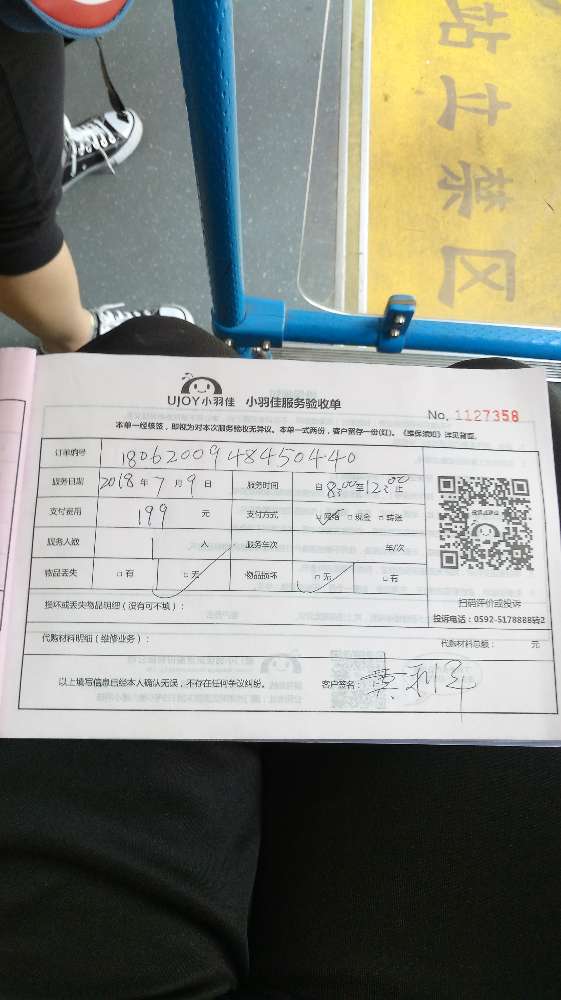 站立禁区
UJOY小羽佳 小羽佳服务验收单
No. 1127358
本单一经核签，即视为对本次服务验收无异议。本单一式两份，客户留存一份(红)。《维保须知》详见背面。
订单编号 1806200948450440
服务日期 2018年7月9日 服务时间 自8:00至12:00止
支付费用 199 元 支付方式 ☑网络 □现金 □转账
服务人数 1 人 服务车次 车/次
物品丢失 □有 ☑无 物品损坏 ☑无 □有
扫码评价或投诉
损坏或丢失物品明细（没有可不填）：
投诉电话：0592-5178888转2
代购材料明细（维修业务）： 代购材料总额： 元
以上填写信息已经本人确认无误，不存在任何争议纠纷。 客户签名：